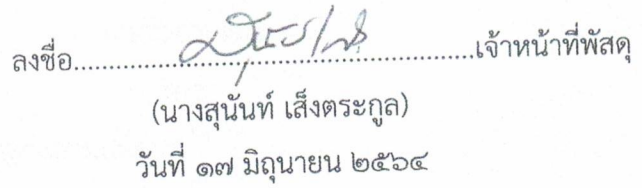 ลงชื่อ................................................................เจ้าหน้าที่พัสดุ
(นางสุนันท์ เส็งตระกูล)
วันที่ ๑๗ มิถุนายน ๒๕๖๔